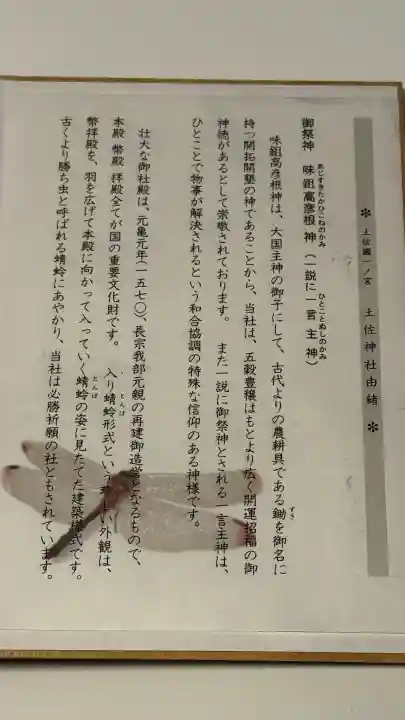 ＊ 土佐國一ノ宮 土佐神社由緒 ＊
御祭神 味鉏高彦根神（一説に一言主神）
あじすきたかひこねのかみ
ひとことぬしのかみ
味鉏高彦根神は、大国主神の御子にして、古代よりの農耕具である鋤を御名に
すき
持つ開拓開墾の神であることから、当社は、五穀豊穣はもとより広く開運招福の御
神徳があるとして崇敬されております。 また一説に御祭神とされる一言主神は、
ひとことで物事が解決されるという和合協調の特殊な信仰のある神様です。
壮大な御社殿は、元亀元年（一五七〇）、長宗我部元親の再建御造営となるもので、
本殿 幣殿 拝殿全てが国の重要文化財です。 入り蜻蛉形式という珍しい外観は、
とんぼ
幣拝殿を、羽を広げて本殿に向かって入っていく蜻蛉の姿に見たてた建築様式です。
とんぼ
古くより勝ち虫と呼ばれる蜻蛉にあやかり、当社は必勝祈願の社ともされています。